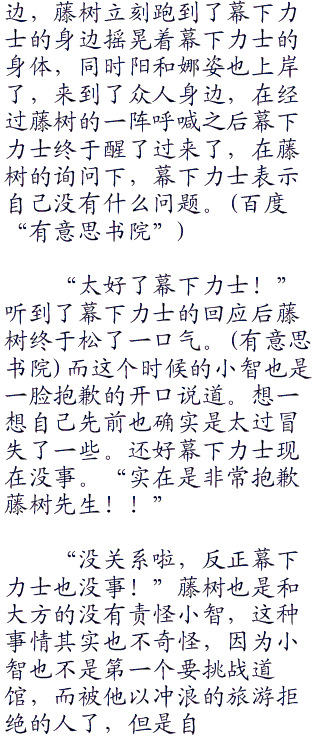 边，藤树立刻跑到了幕下力
士的身边摇晃着幕下力士的
身体，同时阳和娜姿也上岸
了，来到了众人身边，在经
过藤树的一阵呼喊之后幕下
力士终于醒了过来了，在藤
树的询问下，幕下力士表示
自己没有什么问题。(百度
“有意思书院”)
“太好了幕下力士！”
听到了幕下力士的回应后藤
树终于松了一口气。(有意思
书院)而这个时候的小智也是
一脸抱歉的开口说道。想一
想自己先前也确实是太过冒
失了一些。还好幕下力士现
在没事。“实在是非常抱歉
藤树先生！！”
“没关系啦，反正幕下
力士也没事！”藤树也是和
大方的没有责怪小智，这种
事情其实也不奇怪，因为小
智也不是第一个要挑战道
馆，而被他以冲浪的旅游拒
绝的人了，但是自